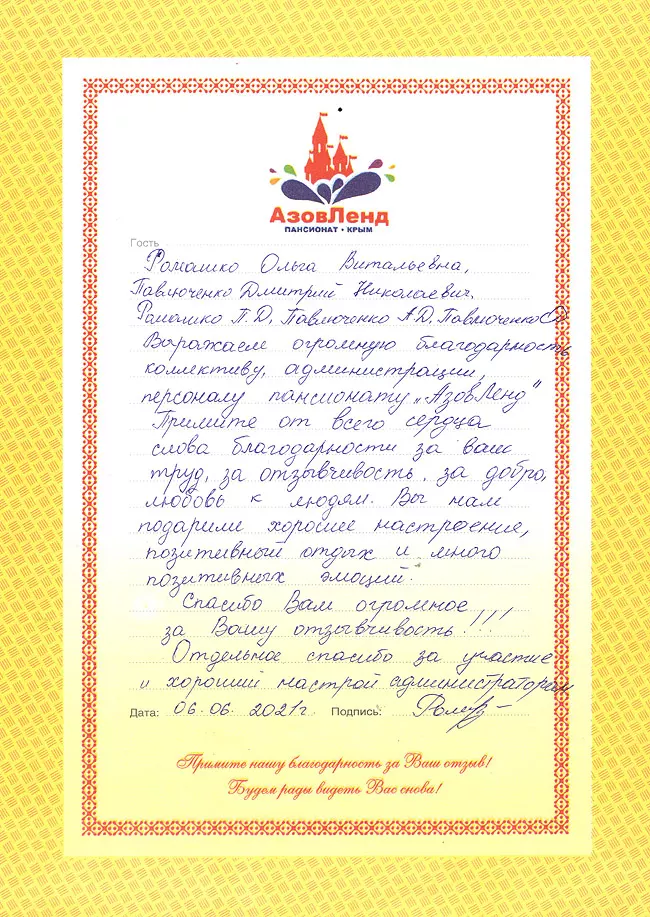 АзовЛенд
ПАНСИОНАТ • КРЫМ
Гость
Ромашко Ольга Витальевна,
Павлюченко Дмитрий Николаевич.
Ромашко П.Д., Павлюченко А.Д., Павлюченко
Выражаем огромную благодарность
коллективу, администрации,
персоналу пансионату „АзовЛенд"
Примите от всего сердца
слова благодарности за ваш
труд, за отзывчивость, за добро,
любовь к людям. Вы нам
подарили хорошее настроение,
позитивный отдых и много
позитивных эмоций.
Спасибо Вам огромное
за Вашу отзывчивость!!!
Отдельное спасибо за участие
и хороший настрой администраторам
Дата: 06.06.2021г. Подпись:
Примите нашу благодарность за Ваш отзыв!
Будем рады видеть Вас снова!